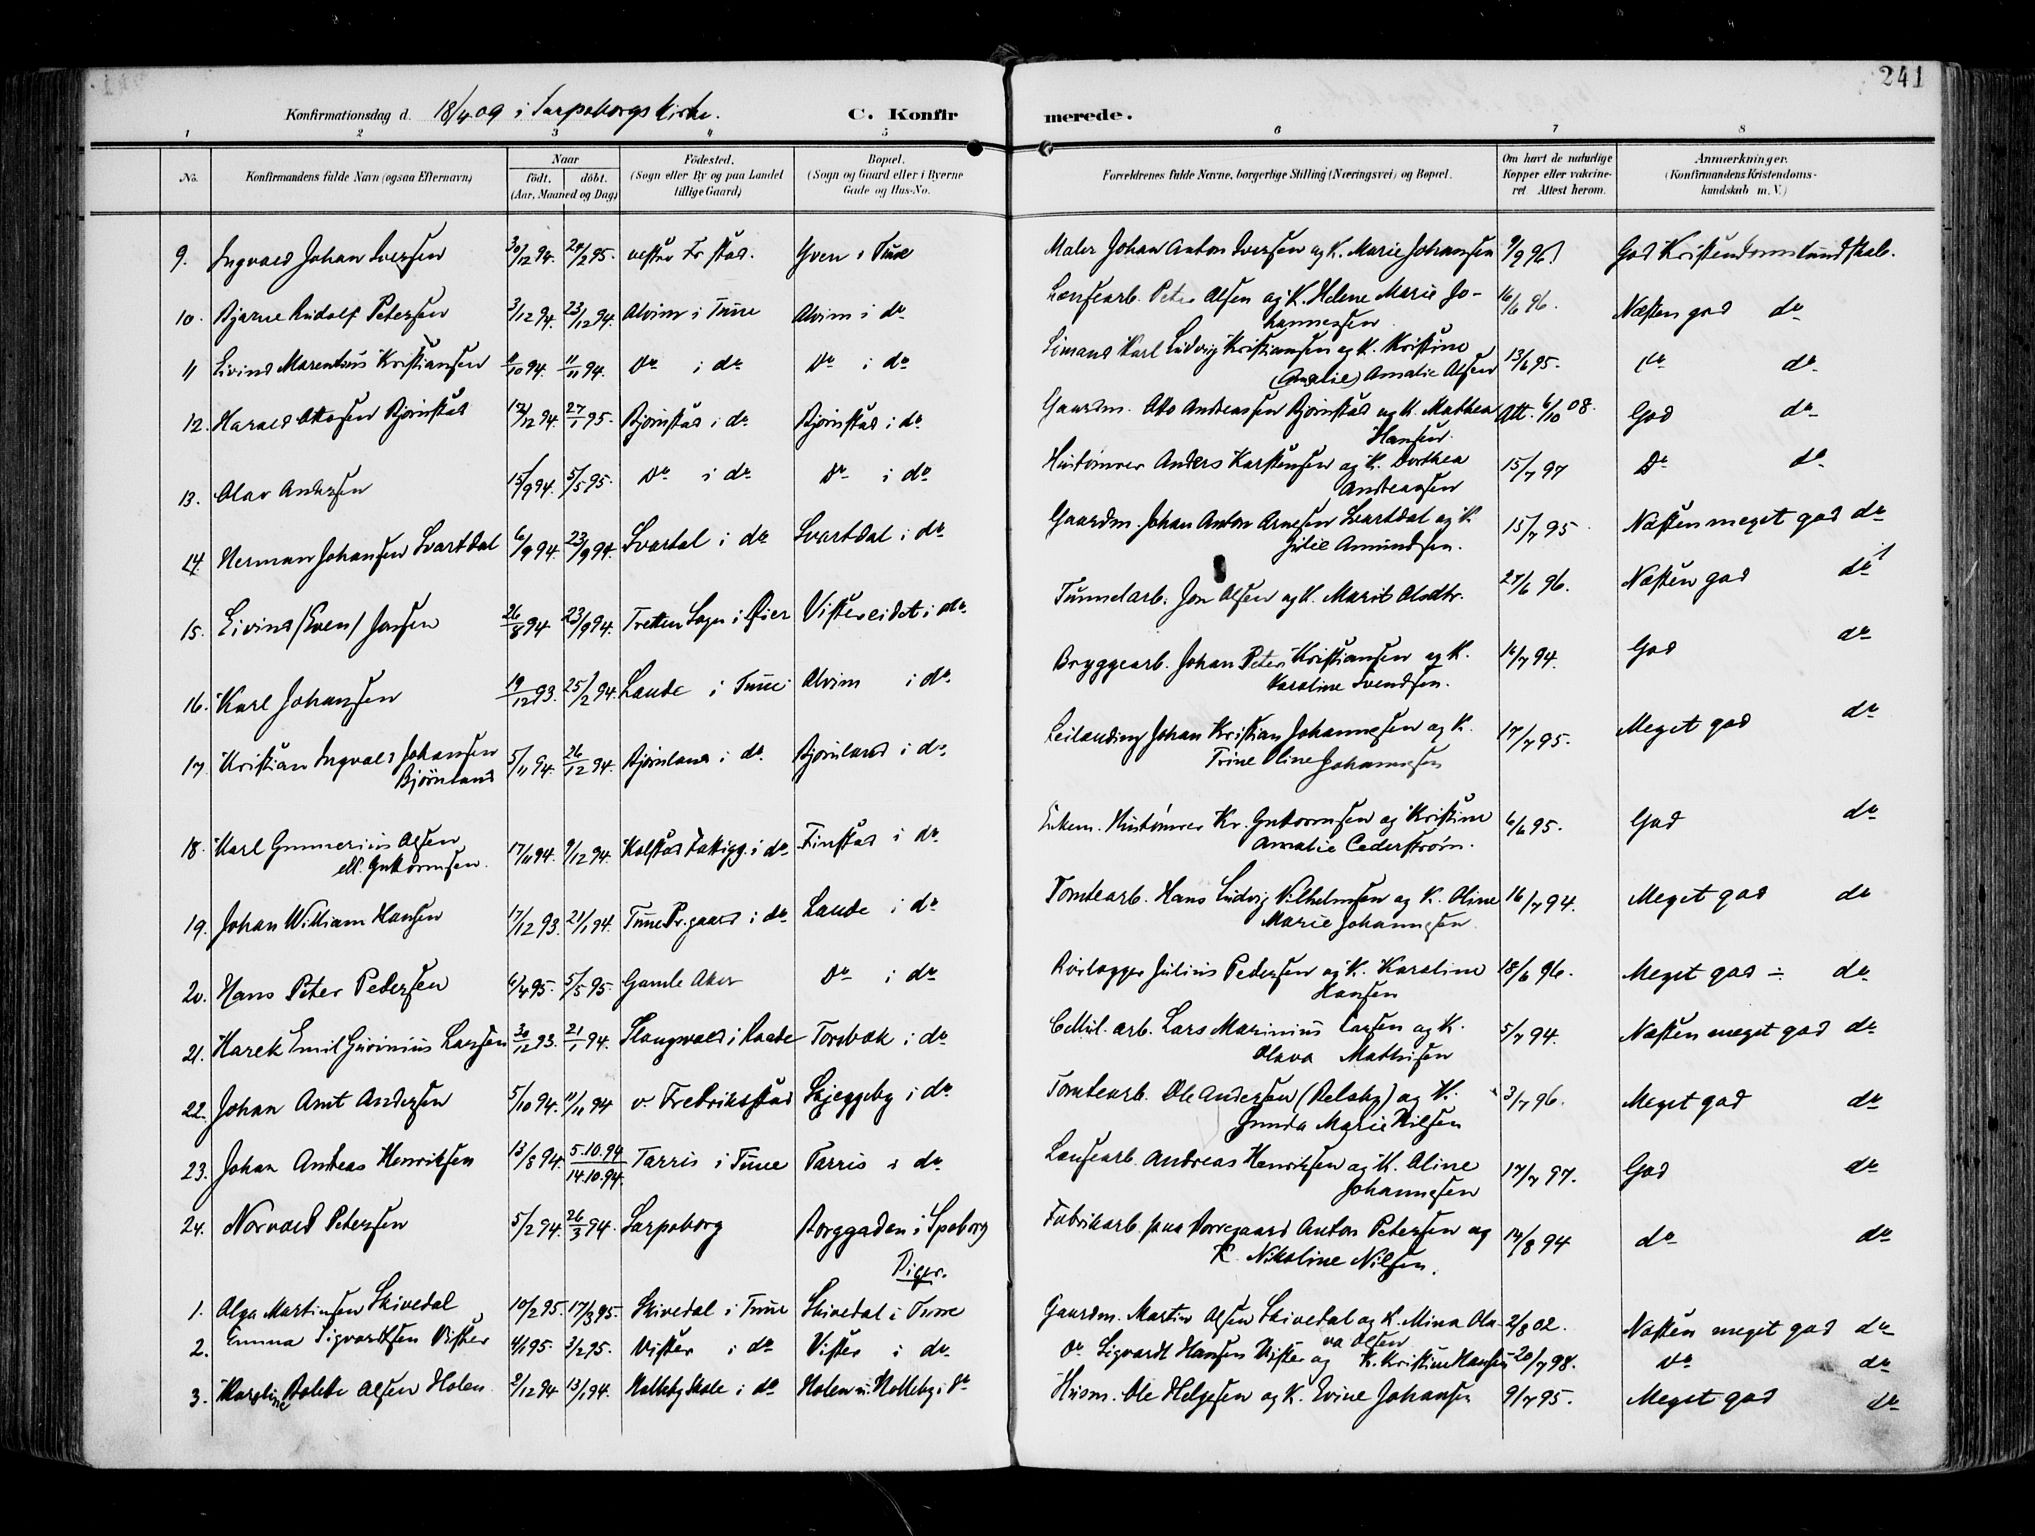 241
Konfirmationsdag d. 18/4 09 i Sarpsborgs Kirke.
C. Konfirmerede.
1 2 3 4 5 6 7 8
No. Konfirmandens fulde Navn (ogsaa Efternavn) Naar født. døbt. (Aar, Maaned og Dag) Fødested. (Sogn eller By og paa Landet tillige Gaard) Bopæl. (Sogn og Gaard eller i Byerne Gade og Hus-No. Forældrenes fulde Navne, borgerlige Stilling (Næringsvei) og Bopæl. Om havt de naturlige Kopper eller vakcineret Attest herom. Anmærkninger. (Konfirmandens Kristendomskundskab m. V.)
9. Ingvald Johan Iversen 30/12 94. 24/2 95. vestre Fr.stad. Yven i Tune Maler Johan Anton Iversen og K. Marie Johansen 9/9 96 God Kristendomskundskab.
10. Bjarne Rudolf Petersen 3/12 94. 23/12 94. Alvim i Tune Alvim i do Lænsearb. Peter Olsen og K. Helene Marie Johannessen 16/6 96. Næsten god do
11 Eivind Marentius Kristiansen 9/10 94. 11/11 94. Do i do Do i do Simand Karl Ludvig Kristiansen og K. Kristine (Amalie) Amalie Olsen 13/6 95. Do do
12. Harald Ottosen Bjørnstad 12/12 94. 27/1 95. Bjørnstad i do Bjørnstad i do Gaardm. Otto Andreassen Bjørnstad og K. Mathea Hansen. Att. 6/10 08. God do
13. Olav Andersen 15/9 94. 5/5 95. Do i do Do i do Hustømrer Anders Karstensen og K. Dorthea Andreassen 15/7 97 Do do
14. Herman Johansen Svartdal 6/9 94. 23/9 94. Svartal i do Svartdal i do Gaardm. Johan Anton Arnesen Svartdal og K. Julie Amundsen. 15/7 95. Næsten meget god do
15. Eivind (Even) Jonsen 26/8 94 23/9 94. Tretten Sogn i Øier Vistereidet i do. Tunnelarb. Jon Olsen og K. Marit Olsdtr. 27/6 96. Næsten god do
16. Karl Johansen 19/12 93. 25/2 94. Lande i Tune Alvim i do Bryggearb. Johan Peter Kristiansen og K. Karoline Svendsen. 16/7 94. God do
17. Kristian Ingvald Johansen Bjørnland 5/11 94. 26/12 94. Bjørnland i do. Bjørnland i do Leilænding Johan Kristian Johannesen og K. Trine Oline Johannesen 17/7 95. Meget god do
18. Karl Gunnerius Olsen ell. Guttormsen. 17/11 94. 9/12 94. Kolstad Fattigg. i do Finstad i do Enkem. Hustømrer Kr. Guttormsen og Kristine Amalie Cederstrøm. 6/6 95. God do
19. Johan William Hansen 17/12 93. 21/1 94. Tune Pr.gaard i do Lande i do Tomtearb. Hans Ludvig Vilhelmsen og K. Oline Marie Johannesen 16/7 94. Meget god do
20. Hans Peter Pedersen 6/4 95. 5/5 95. Gamle Aker Do i do Rørlægger Julius Pedersen og K. Karoline Hansen 18/6 96. Meget god ÷ do
21. Harek Emil Guvinius Larsen 30/12 93. 21/1 94. Slangsvold i Raade Torsbæk i do Cellul.arb. Lars Marinius Larsen og K. Olava Mathisen 5/7 94. Næsten meget god do
22. Johan Arnt Andersen 5/10 94. 11/11 94 v. Fredriksstad Skjeggeby i do Tomtearb. Ole Andersen (Delsby) og K. Gunda Marie Nilsen 3/7 96. Meget god do
23. Johan Andreas Henriksen 13/8 94. 5.10.94 14.10.94. Tarris i Tune Tarris i do Lænsearb. Andreas Henriksen og K. Oline Johannesen 17/7 97. God do
24. Norvald Petersen 5/2 94. 26/3 94. Sarpsborg Borggaden i Spsborg Fabrikarb. paa Borregaard Anton Petersen og K. Nikoline Nilsen. 14/8 94 do do
Piger.
1. Olga Martinsen Skivedal 10/2 95. 17/3 95. Skivedal i Tune Skivedal i Tune Gaardm. Martin Olsen Skivedal og K. Mina Olava Olsen 2/8 02. Næsten meget god do
2. Emma Sigvardtsen Vister 4/1 95. 3/2 95. Vister i do Vister i do. Do Sigvardt Hansen Vister og K. Kristine Hansen 20/7 98. Do do
3. Karoline Bolette Olsen Holen. 2/12 94 13/1 94. Kolleby Skole i do Holen u. Kolleby i do Husm. Ole Helgesen og K. Evine Johansen 9/7 95. Meget god do